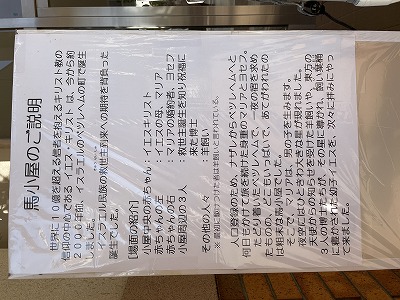 馬小屋のご説明
世界に10億を越える信者を抱えるキリスト教の
信仰の中心であるイエス・キリストは、今から約
2000年前、イスラエルのベツレヘムの町で誕生
しました。
イスラエル民族の救世主到来への期待を背負った
誕生でした。
【場面の紹介】
小屋中央の赤ちゃん：イエスキリスト
赤ちゃんの左：イエスの母、マリア
赤ちゃんの右：マリアの婚約者、ヨセフ
小屋周辺の3人：救世主誕生を知り祝福に
来た博士
その他の人々：羊飼い
※ 最初に駆けつけた者は羊飼いと言われている
人口登録のため、ナザレからベツレヘムへと
何日もかけて旅を続けた身重のマリアとヨセフ。
たどり着いたベツレヘムで、一夜の宿を求め
たものの、宿はどこもいっぱいで、あてがわれたの
は粗末な馬小屋でした。
そこで、マリアは、男の子を生みます。
夜空にはひときわ大きな星が現れました。
天使から知らせを受けた羊飼いや、東方の
3人の博士たちが、その星に導かれ、飼い葉桶
に寝かされた幼子イエスを、次々に拝みにやっ
て来ました。